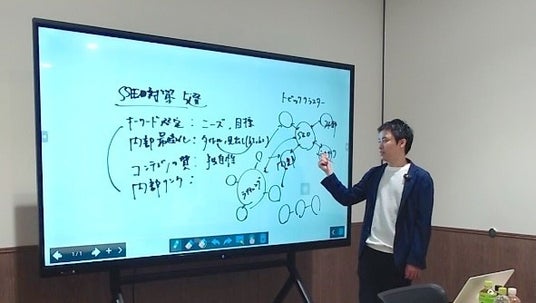 SEO対策
トピッククラスター
キーワード選定：ニーズ、目標
内部最適化：タイトル、見出し
コンテンツの質：独自性
内部リンク：
SEO
内部
ライティング
1/1